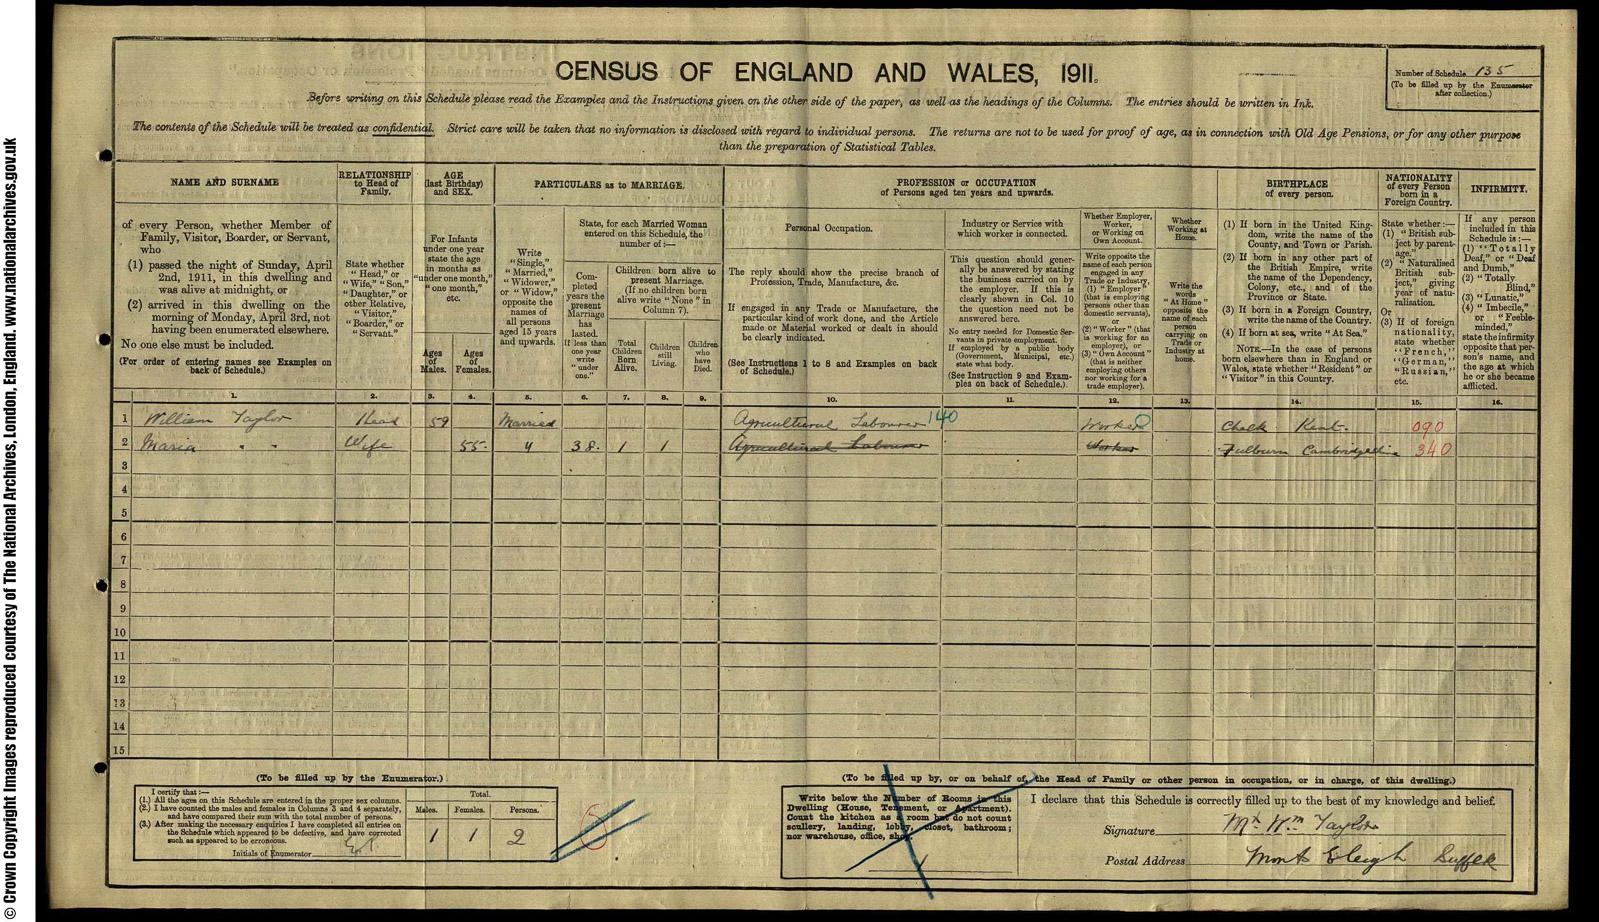 CENSUS OF ENGLAND AND WALES, 1911.
Number of Schedule 135
(To be filled up by the Enumerator after collection.)
Before writing on this Schedule please read the Examples and the Instructions given on the other side of the paper, as well as the headings of the Columns. The entries should be written in Ink.
The contents of the Schedule will be treated as confidential. Strict care will be taken that no information is disclosed with regard to individual persons. The returns are not to be used for proof of age, as in connection with Old Age Pensions, or for any other purpose
than the preparation of Statistical Tables.
NAME AND SURNAME
of every Person, whether Member of
Family, Visitor, Boarder, or Servant,
who
(1) passed the night of Sunday, April
2nd, 1911, in this dwelling and
was alive at midnight, or
(2) arrived in this dwelling on the
morning of Monday, April 3rd, not
having been enumerated elsewhere.
No one else must be included.
(For order of entering names see Examples on
back of Schedule.)
RELATIONSHIP
to Head of
Family.
State whether
"Head," or
"Wife," "Son,"
"Daughter," or
other Relative,
"Visitor,"
"Boarder," or
"Servant."
AGE
(last Birthday)
and SEX.
For Infants
under one year
state the age
in months as
"under one month,"
"one month,"
etc.
Ages
of
Males.
Ages
of
Females.
PARTICULARS as to MARRIAGE.
Write
"Single,"
"Married,"
"Widower,"
or "Widow,"
opposite the
names of
all persons
aged 15 years
and upwards.
State, for each Married Woman
entered on this Schedule, the
number of:—
Com-
pleted
years the
present
Marriage
has
lasted.
If less than
one year
write
"under
one."
Children born alive to
present Marriage.
(If no children born
alive write "None" in
Column 7).
Total
Children
Born
Alive.
Children
still
Living.
Children
who
have
Died.
PROFESSION or OCCUPATION
of Persons aged ten years and upwards.
Personal Occupation.
The reply should show the precise branch of
Profession, Trade, Manufacture, &c.
If engaged in any Trade or Manufacture, the
particular kind of work done, and the Article
made or Material worked or dealt in should
be clearly indicated.
(See Instructions 1 to 8 and Examples on back
of Schedule.)
Industry or Service with
which worker is connected.
This question should gener-
ally be answered by stating
the business carried on by
the employer. If this is
clearly shown in Col. 10
the question need not be
answered here.
No entry needed for Domestic Ser-
vants in private employment.
If employed by a public body
(Government, Municipal, etc.)
state what body.
(See Instruction 9 and Exam-
ples on back of Schedule.)
Whether Employer,
Worker,
or Working on
Own Account.
Write opposite the
name of each person
engaged in any
Trade or Industry,
(1) "Employer"
(that is employing
persons other than
domestic servants),
or
(2) "Worker" (that
is working for an
employer), or
(3) "Own Account"
(that is neither
employing others
nor working for a
trade employer).
Whether
Working at
Home.
Write the
words
"At Home"
opposite the
name of each
person
carrying on
Trade or
Industry at
home.
BIRTHPLACE
of every person.
(1) If born in the United King-
dom, write the name of the
County, and Town or Parish.
(2) If born in any other part of
the British Empire, write
the name of the Dependency,
Colony, etc., and of the
Province or State.
(3) If born in a Foreign Country,
write the name of the Country.
(4) If born at sea, write "At Sea."
NOTE.—In the case of persons
born elsewhere than in England or
Wales, state whether "Resident" or
"Visitor" in this Country.
NATIONALITY
of every Person
born in a
Foreign Country.
State whether:—
(1) "British sub-
ject by parent-
age."
(2) "Naturalised
British sub-
ject," giving
year of natu-
ralisation.
Or
(3) If of foreign
nationality,
state whether
"French,"
"German,"
"Russian,"
etc.
INFIRMITY.
If any person
included in this
Schedule is:—
(1) "Totally
Deaf," or "Deaf
and Dumb,"
(2) "Totally
Blind,"
(3) "Lunatic,"
(4) "Imbecile,"
or "Feeble-
minded,"
state the infirmity
opposite that per-
son's name, and
the age at which
he or she became
afflicted.
1. 2. 3. 4. 5. 6. 7. 8. 9. 10. 11. 12. 13. 14. 15. 16.
1 William Taylor Head 59 Married Agricultural Labourer 140 Worker Chalk Kent. 090
2 Maria " " Wife 55 38 1 1 Agricultural Labourer Worker Fulburn Cambridgeshire 340
3
4
5
6
7
8
9
10
11
12
13
14
15
(To be filled up by the Enumerator.)
I certify that:—
(1.) All the ages on this Schedule are entered in the proper sex columns.
(2.) I have counted the males and females in Columns 3 and 4 separately,
and have compared their sum with the total number of persons.
(3.) After making the necessary enquiries I have completed all entries on
the Schedule which appeared to be defective, and have corrected
such as appeared to be erroneous.
Initials of Enumerator
Total.
Males. Females. Persons.
1 1 2
(To be filled up by, or on behalf of, the Head of Family or other person in occupation, or in charge, of this dwelling.)
Write below the Number of Rooms in this
Dwelling (House, Tenement, or Apartment).
Count the kitchen as a room but do not count
scullery, landing, lobby, closet, bathroom;
nor warehouse, office, shop.
I declare that this Schedule is correctly filled up to the best of my knowledge and belief.
Signature Mr Wm Taylor
Postal Address Monks Eleigh Suffolk
© Crown Copyright Images reproduced courtesy of The National Archives, London, England. www.nationalarchives.gov.uk